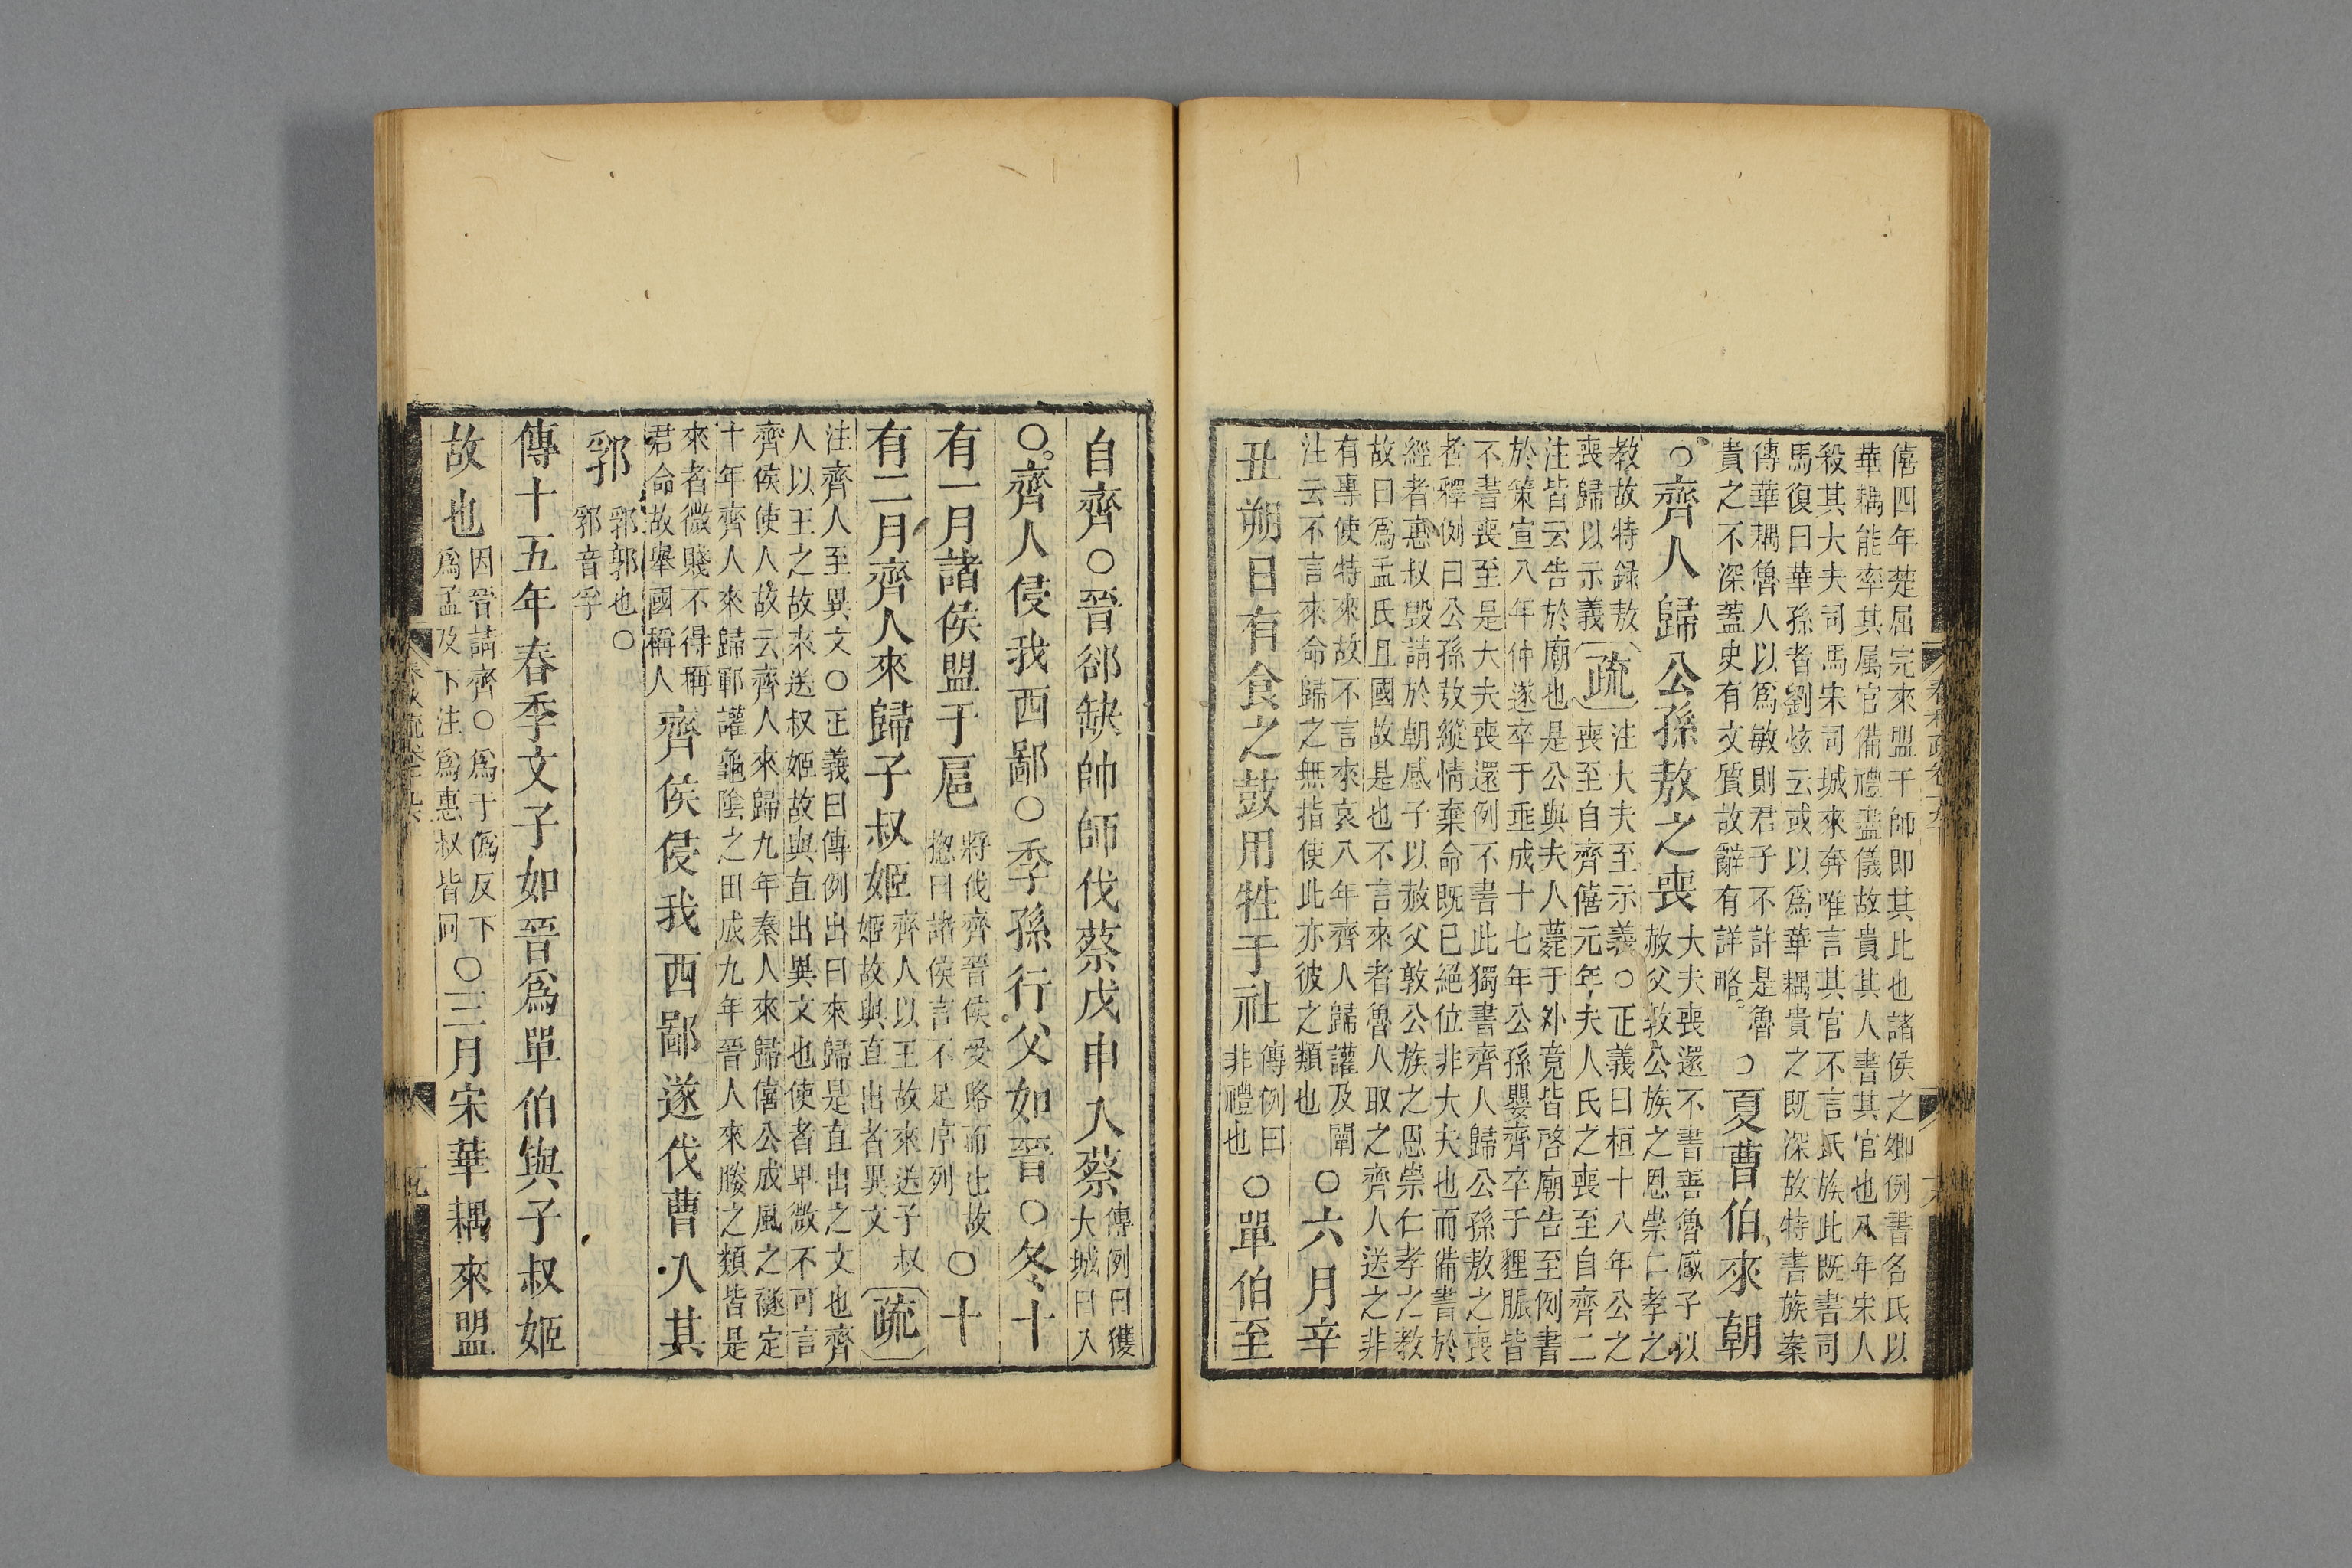 僖四年楚屈完來盟于師即其比也諸侯之卿例書名氏以
華耦能率其属官備禮盡儀故貴其人書其官也八年宋人
殺其大夫司馬宋司城來奔唯言其官不言氏族此既書司
馬復曰華孫者劉炫云或以爲華耦貴之既深故特書族案
傳華耦魯人以爲敏則君子不許是魯
貴之不深蓋史有文質故辭有詳略。
○夏曹伯來朝
○齊人歸公孫敖之喪
大夫喪還不書善魯感子以
赦父敦公族之恩崇仁孝之
教故特録敖
喪歸以示義
疏
注大夫至示義○正義曰桓十八年公之
喪至自齊僖元年夫人氏之喪至自齊二
注皆云告於廟也是公與夫人薨于外竟皆啓廟告至例書
於策宣八年仲遂卒于垂成十七年公孫嬰齊卒于貍脤皆
不書喪至是大夫喪還例不書此獨書齊人歸公孫敖之喪
者釋例曰公孫敖縱情棄命既已絕位非大夫也而備書於
經者惠叔毀請於朝感子以赦父敦公族之恩崇仁孝之教
故曰爲孟氏且國故是也不言來者魯人取之齊人送之非
有專使特來故不言來哀八年齊人歸讙及闡
注云不言來命歸之無指使此亦彼之類也
○六月辛
丑朔日有食之鼓用牲于社
傳例曰
非禮也
○單伯至
自齊○晉郤缺帥師伐蔡戊申入蔡
傳例曰獲
大城曰入
○齊人侵我西鄙○季孫行父如晉○冬十
有一月諸侯盟于扈
將伐齊晉侯受賂而止故
揔曰諸侯言不足序列
○十
有二月齊人來歸子叔姬
齊人以王故來送子叔
姬故與直出者異文
疏
注齊人至異文○正義曰傳例出曰來歸是直出之文也齊
人以王之故來送叔姬故與直出異文也使者卑微不可言
齊侯使人故云齊人來歸九年秦人來歸僖公成風之襚定
十年齊人來歸鄆讙龜陰之田成九年晉人來媵之類皆是
來者微賤不得稱
君命故舉國稱人
齊侯侵我西鄙遂伐曹入其
郛
郛郭也○
郛音孚
傳十五年春季文子如晉爲單伯與子叔姬
故也
因晉請齊○爲于僞反下
爲孟及下注爲惠叔皆同
○三月宋華耦來盟